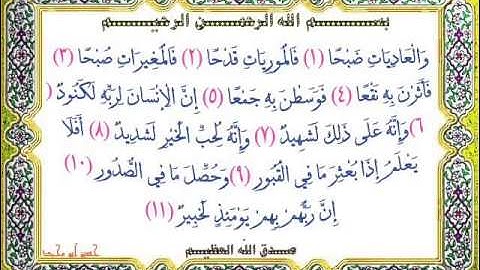 بسم الله الرحمن الرحيم
وَالْعَادِيَاتِ ضَبْحًا (١) فَالْمُورِيَاتِ قَدْحًا (٢) فَالْمُغِيرَاتِ صُبْحًا (٣)
فَأَثَرْنَ بِهِ نَقْعًا (٤) فَوَسَطْنَ بِهِ جَمْعًا (٥) إِنَّ الْإِنْسَانَ لِرَبِّهِ لَكَنُودٌ (
٦) وَإِنَّهُ عَلَى ذَلِكَ لَشَهِيدٌ (٧) وَإِنَّهُ لِحُبِّ الْخَيْرِ لَشَدِيدٌ (٨) أَفَلَا
يَعْلَمُ إِذَا بُعْثِرَ مَا فِي الْقُبُورِ (٩) وَحُصِّلَ مَا فِي الصُّدُورِ (١٠)
إِنَّ رَبَّهُمْ بِهِمْ يَوْمَئِذٍ لَخَبِيرٌ (١١)
صدق الله العظيم